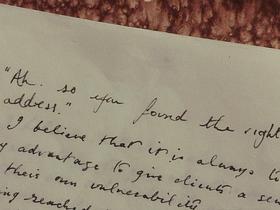 "Ah. so you found the right
address."
I believe that it is always to
advantage to give clients a
their own vulnerability
reached